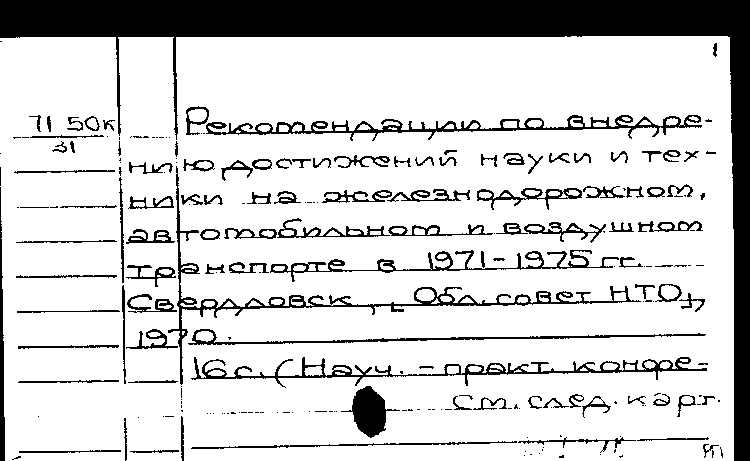 1
71 50к
31
Рекомендации по внедре-
нию достижений науки и тех-
ники на железнодорожном,
автомобильном и воздушном
транспорте в 1971-1975 гг.
Свердловск, [Обл. совет НТО],
1970.
16 с. (Науч. - практ. конфе-
см. след. карт.